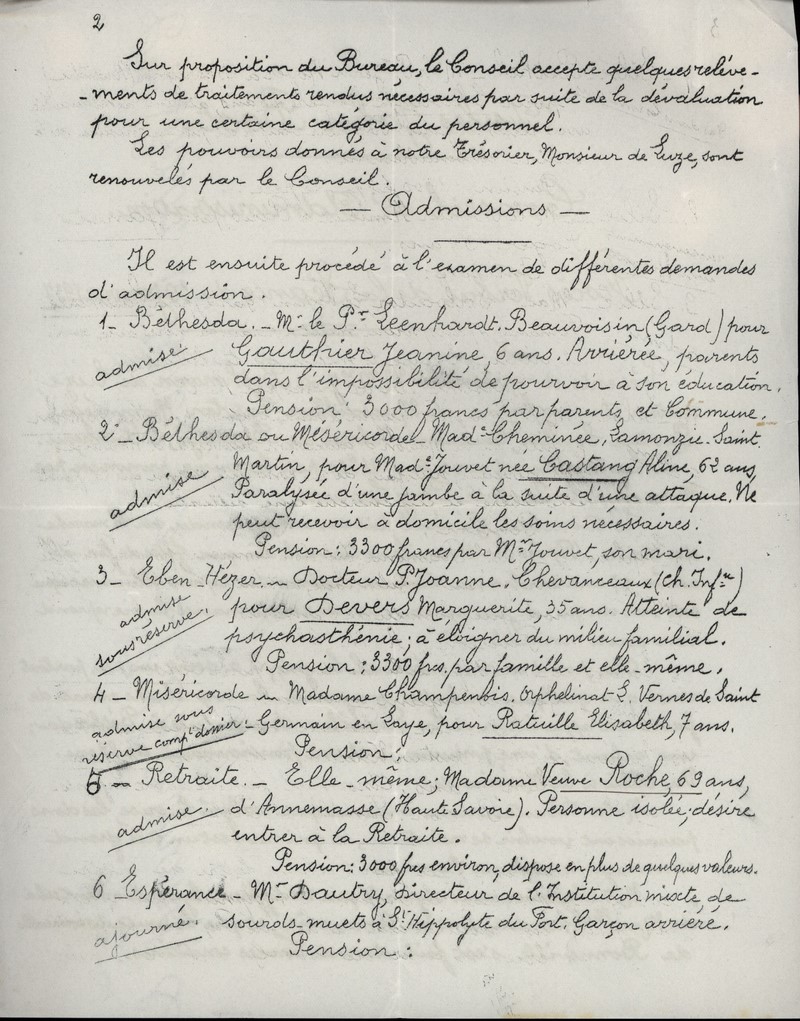 2
Sur proposition du Bureau, le Conseil accepte quelques relève-
-ments de traitements rendus nécessaires par suite de la dévaluation
pour une certaine catégorie du personnel.
Les pouvoirs donnés à notre Trésorier, Monsieur de Luze, sont
renouvelés par le Conseil.
— Admissions —
Il est ensuite procédé à l'examen de différentes demandes
d'admission.
1- Béthesda. - Mr le Pr Leenhardt. Beauvoisin (Gard) pour
admise Gauthier Jeanine, 6 ans. Arriérée, parents
dans l'impossibilité de pourvoir à son éducation.
Pension: 3000 francs par parents et Commune.
2°- Béthesda ou Miséricorde - Made Cheminée, Lamonzie-Saint
Martin, pour Made Jouvet née Castang Aline, 62 ans
admise Paralysée d'une jambe à la suite d'une attaque. Ne
peut recevoir à domicile les soins nécessaires.
Pension: 3300 francs par Mr Jouvet, son mari.
3- Eben-Hézer - Docteur P. Joanne. Chevanceaux (Ch. Infre)
admise sous réserve. pour Devers Marguerite, 35 ans. Atteinte de
psychasthénie; à éloigner du milieu familial.
Pension: 3300 frs. par famille et elle-même.
4- Miséricorde - Madame Champenois. Orphelinat L. Vernes de Saint
admise sous réserve compt dossier: - Germain en Laye, pour Ratuille Elisabeth, 7 ans.
Pension:
5- Retraite. - Elle-même; Madame Veuve Roche, 69 ans,
admise. d'Annemasse (Haute Savoie). Personne isolée; désire
entrer à la Retraite.
Pension: 3000 frcs environ, dispose en plus de quelques valeurs.
6 Espérance - Mr Dautry, Directeur de l'Institution mixte de
ajourné. sourds-muets à St Hippolyte du Fort. Garçon arriéré.
Pension: